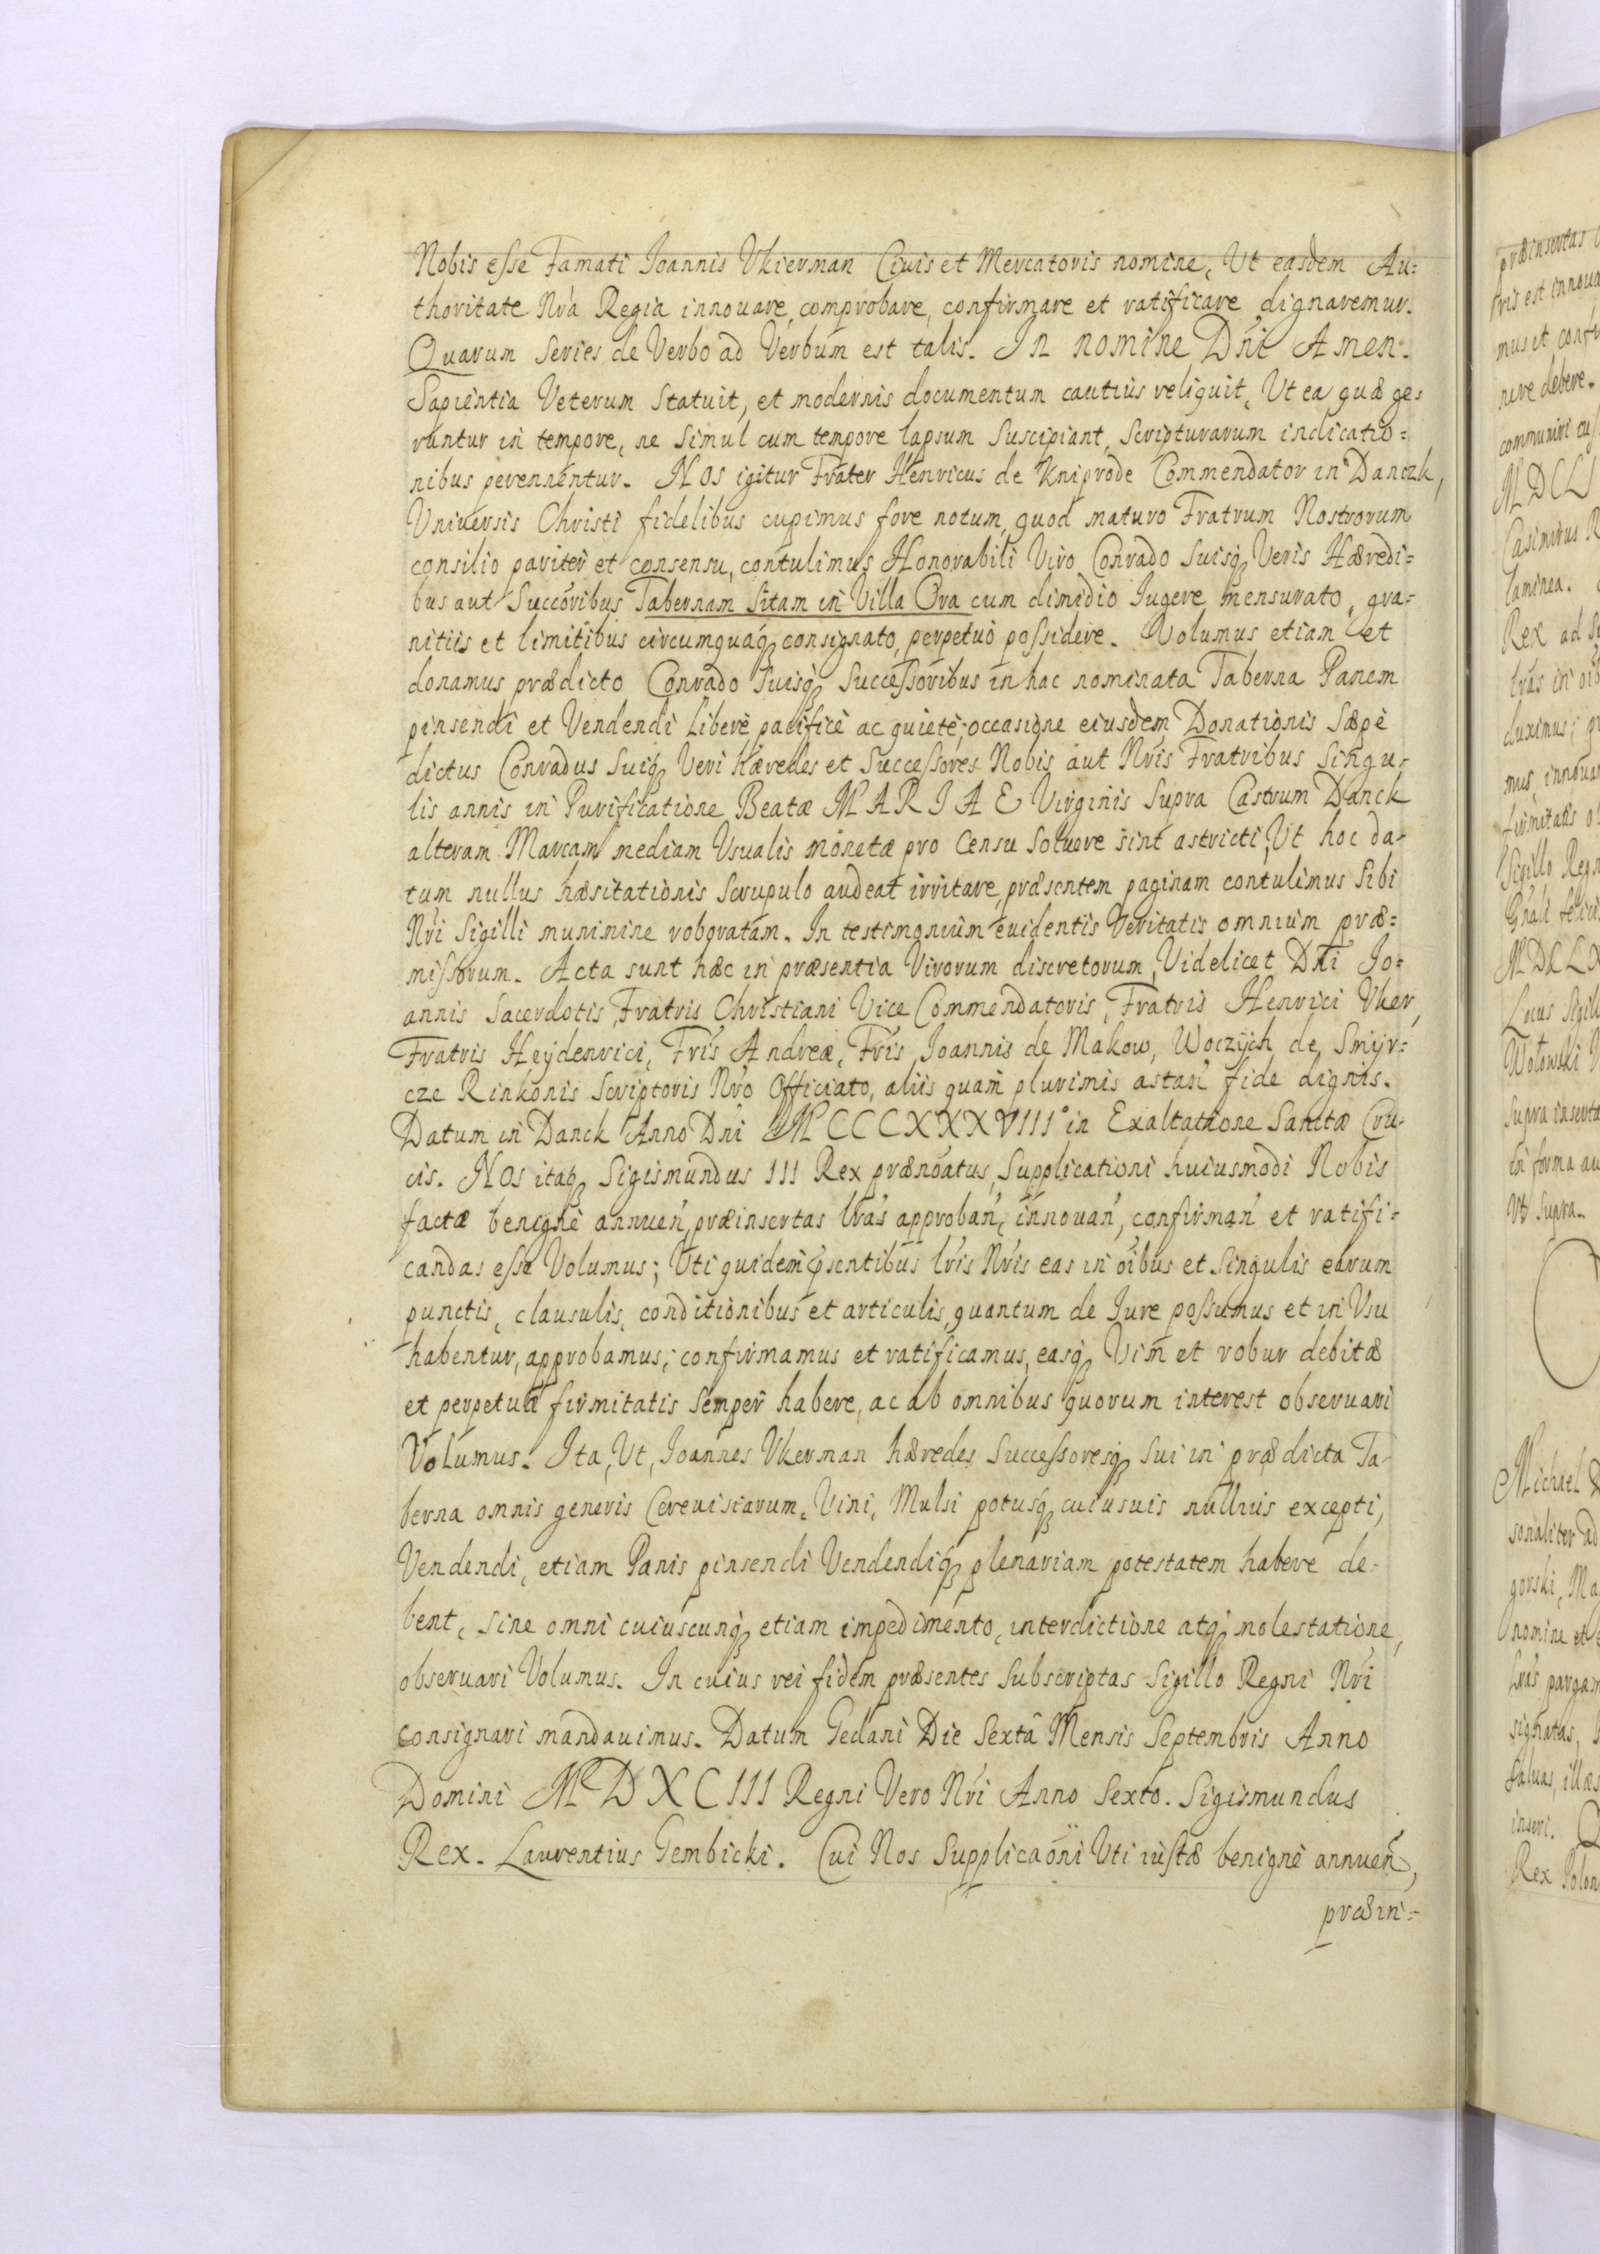 Nobis esse Famati Joannis Vkierman Civis et Mercatoris nomine, Ut easdem Au=
thoritate Nrâ Regia innouare, comprobare, confirmare et ratificare dignaremur.
Quarum series de Verbo ad Verbum est talis. In nomine Dñi Amen.
Sapientia Veterum statuit, et modernis documentum cautiùs reliquit, Ut ea quæ ge=
runtur in tempore, ne simul cum tempore lapsum suscipiant, scripturarum indicatio=
nibus perennentur. Nos igitur Frater Henricus de Kniprode Commendator in Danczk,
Universis Christi fidelibus cupimus fore notum, quod maturo Fratrum Nostrorum
consilio pariter et consensu, contulimus Honorabili Viro Conrado suisq, Veris Hæredi=
bus aut Succoribus Tabernam sitam in Villa Ora cum dimidio Jugere mensurato, gra=
nitiis et limitibus circumquaq, consignato, perpetuò possidere. Volumus etiam et
donamus prædicto Conrado suisq, Successoribus in hac nominata Taberna Panem
pinsendi et Vendendi liberè pacificè ac quietè; occasione eiusdem Donationis sæpè
dictus Conradus suiq, Veri hæredes et Successores Nobis aut Nris Fratribus singu=
lis annis in Purificatione Beatæ MARIAE Virginis supra Castrum Danck
alteram Marcam mediam Usualis monetæ pro Censu soluere sint astricti; Ut hoc da=
tum nullus hæsitationis scrupulo audeat irritare, præsentem paginam contulimus sibi
Nri Sigilli munimine roboratam. In testimonium euidentis Veritatis omnium præ=
missorum. Acta sunt hæc in præsentia Virorum discretorum, Videlicet Dñi Jo=
annis Sacerdotis, Fratris Christiani Vice Commendatoris, Fratris Henrici Vker,
Fratris Heydenrici, Fris Andreæ, Fris Joannis de Makow, Woczych de Smyr=
cze Rinkonis Scriptoris Nro Officiato, aliis quam plurimis astañ fide dignis.
Datum in Danck Anno Dñi MCCCXXXVIII° in Exaltatione Sanctæ Cru=
cis. Nos itaq, Sigismundus III Rex prænoatus, Supplicationi huiusmodi Nobis
factæ benignè annueñ, præinsertas lras approbañ, innouañ, confirmañ et ratifi=
candas esse Volumus; Uti quidem pñsentibus lris Nris eas in oibus et singulis earum
punctis, clausulis, conditionibus et articulis, quantum de Jure possumus et in Vsu
habentur, approbamus, confirmamus et ratificamus, easq, Vim et robur debitæ
et perpetuæ firmitatis semper habere, ac ab omnibus quorum interest obseruari
Volumus. Ita, Ut, Joannes Vkerman hæredes Successoresq, sui in prædicta Ta=
berna omnis generis Cereuisiarum, Vini, Mulsi potusq, cuiusuis nullius excepti,
Vendendi, etiam Panis pinsendi Vendendiq, plenariam potestatem habere de=
bent, sine omni cuiuscunq, etiam impedimento, interdictione atq, molestatione,
obseruari Volumus. In cuius rei fidem præsentes subscriptas Sigillo Regni Nri
consignari mandauimus. Datum Gedani Die Sexta Mensis Septembris Anno
Domini MDXCIII Regni Vero Nri Anno Sexto. Sigismundus
Rex. Laurentius Gembicki. Cui Nos Supplicaoni Uti iustæ benignè annueñ,
præin=
præinsertas
ris est innoua
mus et confi
nere debere.
communiri
MDCLI
Casimirus R
laminea.
Rex ad
lras in oib
duximus;
mus, innouar
firmitatis
Sigillo Regn
MDCLX
Locus Sigil
supra insert
in forma au
Vt supra.
Michael
sonaliter ad
gorski, Ma
nomine et
lras pargam
signatas,
saluas, illæs
inseri.
Rex Polon